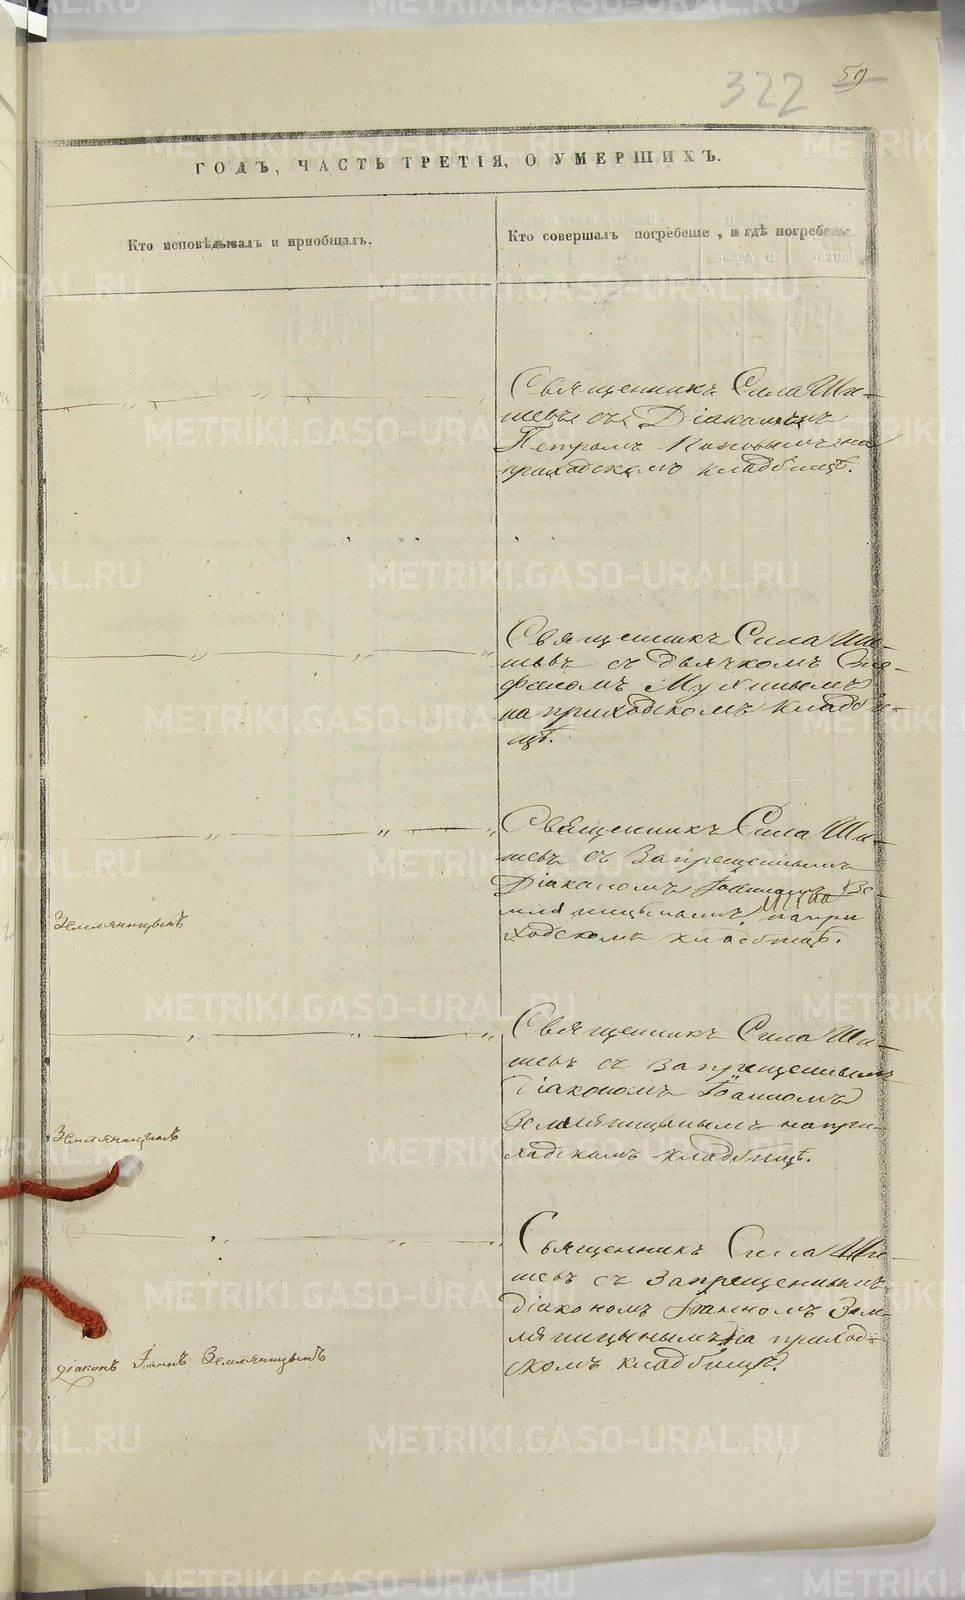 322 59
ГОДЪ, ЧАСТЬ ТРЕТІЯ, О УМЕРШИХЪ.
Кто исповѣдывалъ и пріобщалъ.
Кто совершалъ погребеніе, и гдѣ погребены.
Священникъ Сила Ши-
шевъ съ Діакономъ
Петромъ Поповымъ на
приходскомъ кладбищѣ.
Священникъ Сила Ши-
шевъ съ дьячкомъ Сте-
фаномъ Мухинымъ
на приходскомъ кладби-
щѣ.
Священникъ Сила Ши-
шевъ съ Запрещеннымъ
Діакономъ Іоанномъ Зе-
мляницынымъ на при
ходскомъ кладбищѣ.
Земляницынъ
Священникъ Сила Ши-
шевъ съ запрещеннымъ
діакономъ Іоанномъ
Земляницынымъ на при-
ходскомъ кладбищѣ.
Земляницынъ
Священникъ Сила Ши-
шевъ съ Запрещеннымъ
діакономъ Іоанномъ Зем-
ляницынымъ на приход-
скомъ кладбищѣ.
діаконъ Іоаннъ Земляницынъ
METRIKI.GASO-URAL.RU